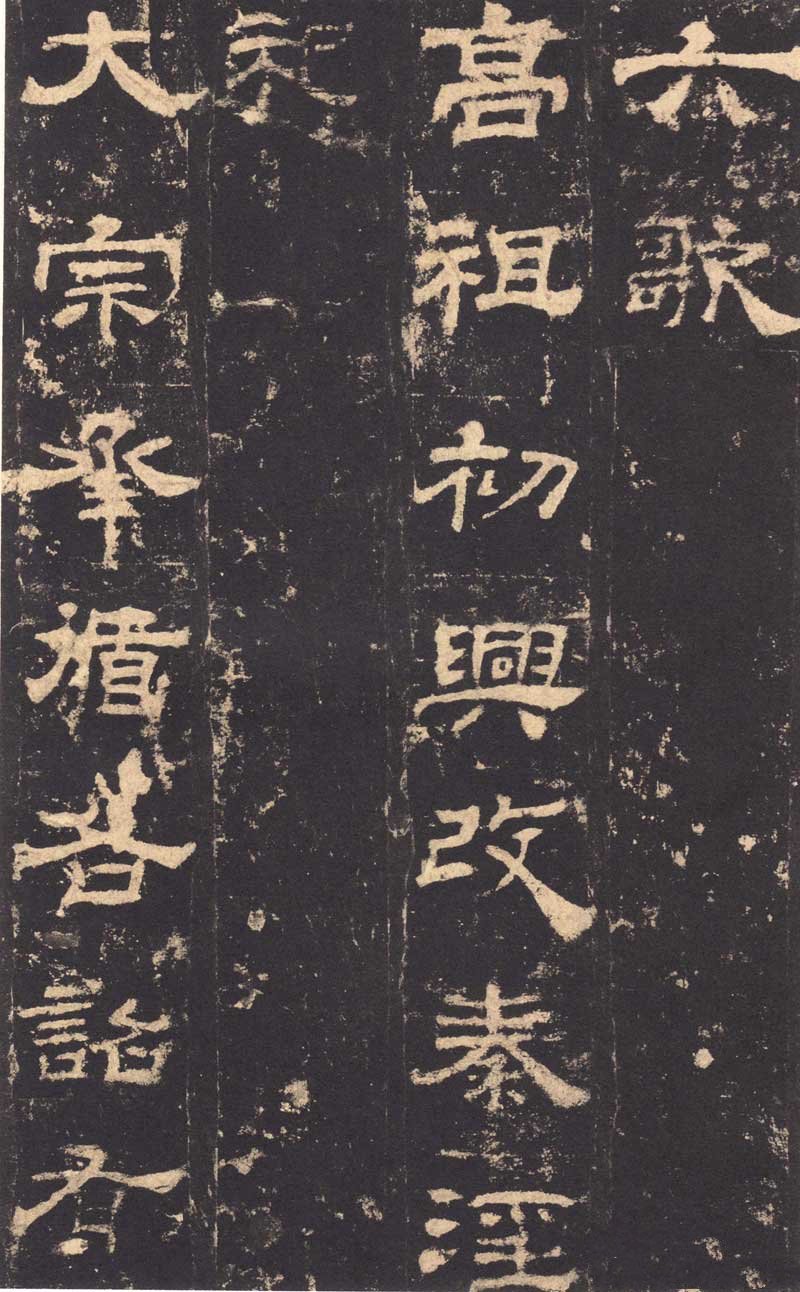 六歌
高祖初興改秦淫
祀
大宗承循各詔有